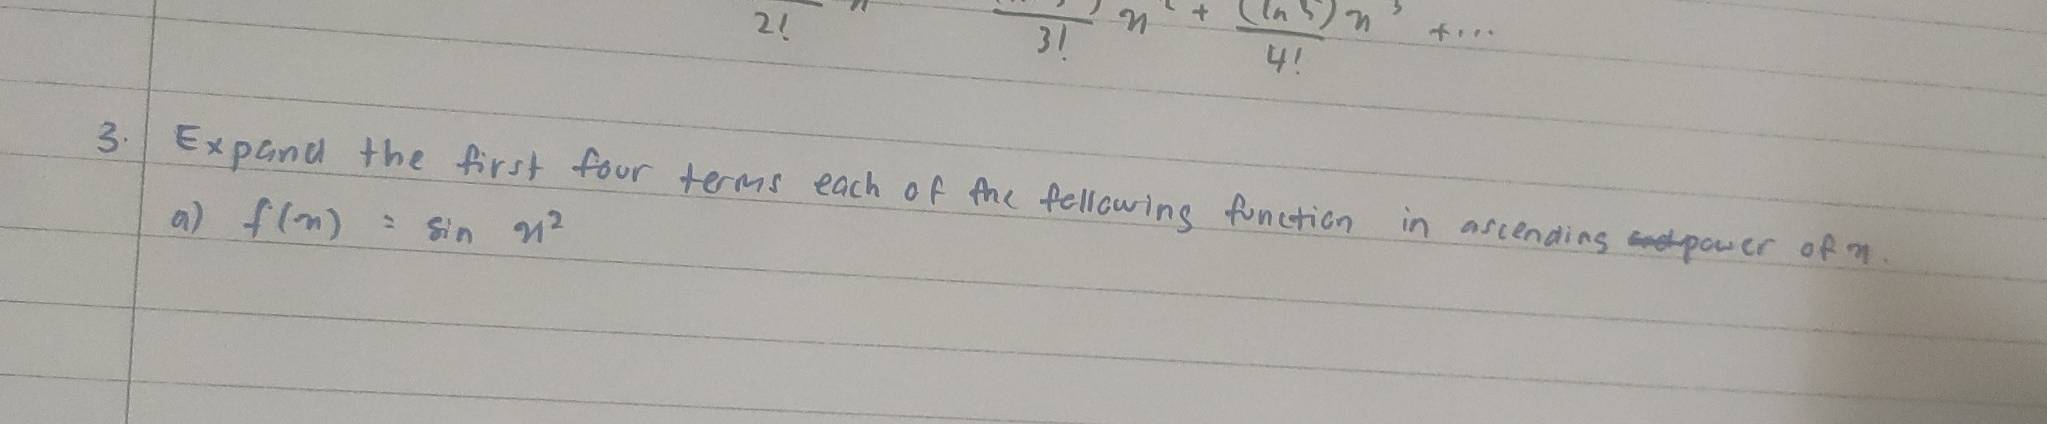 2! 3! x² + (ln 5) x³ + ...
4!
3. Expand the first four terms each of the following function in ascending power of x.
a) f(x) = sin x²